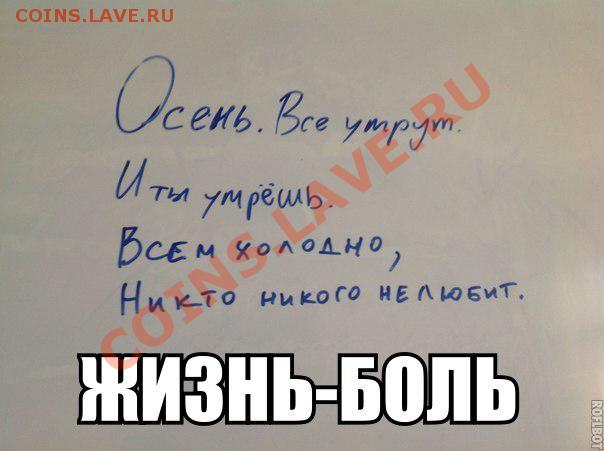 COINS.LAVE.RU
Осень. Все утрут.
И ты умрёшь.
Всем холодно,
Никто никого не любит.
COINS.LAVE.RU
ЖИЗНЬ-БОЛЬ
ROFLBOT